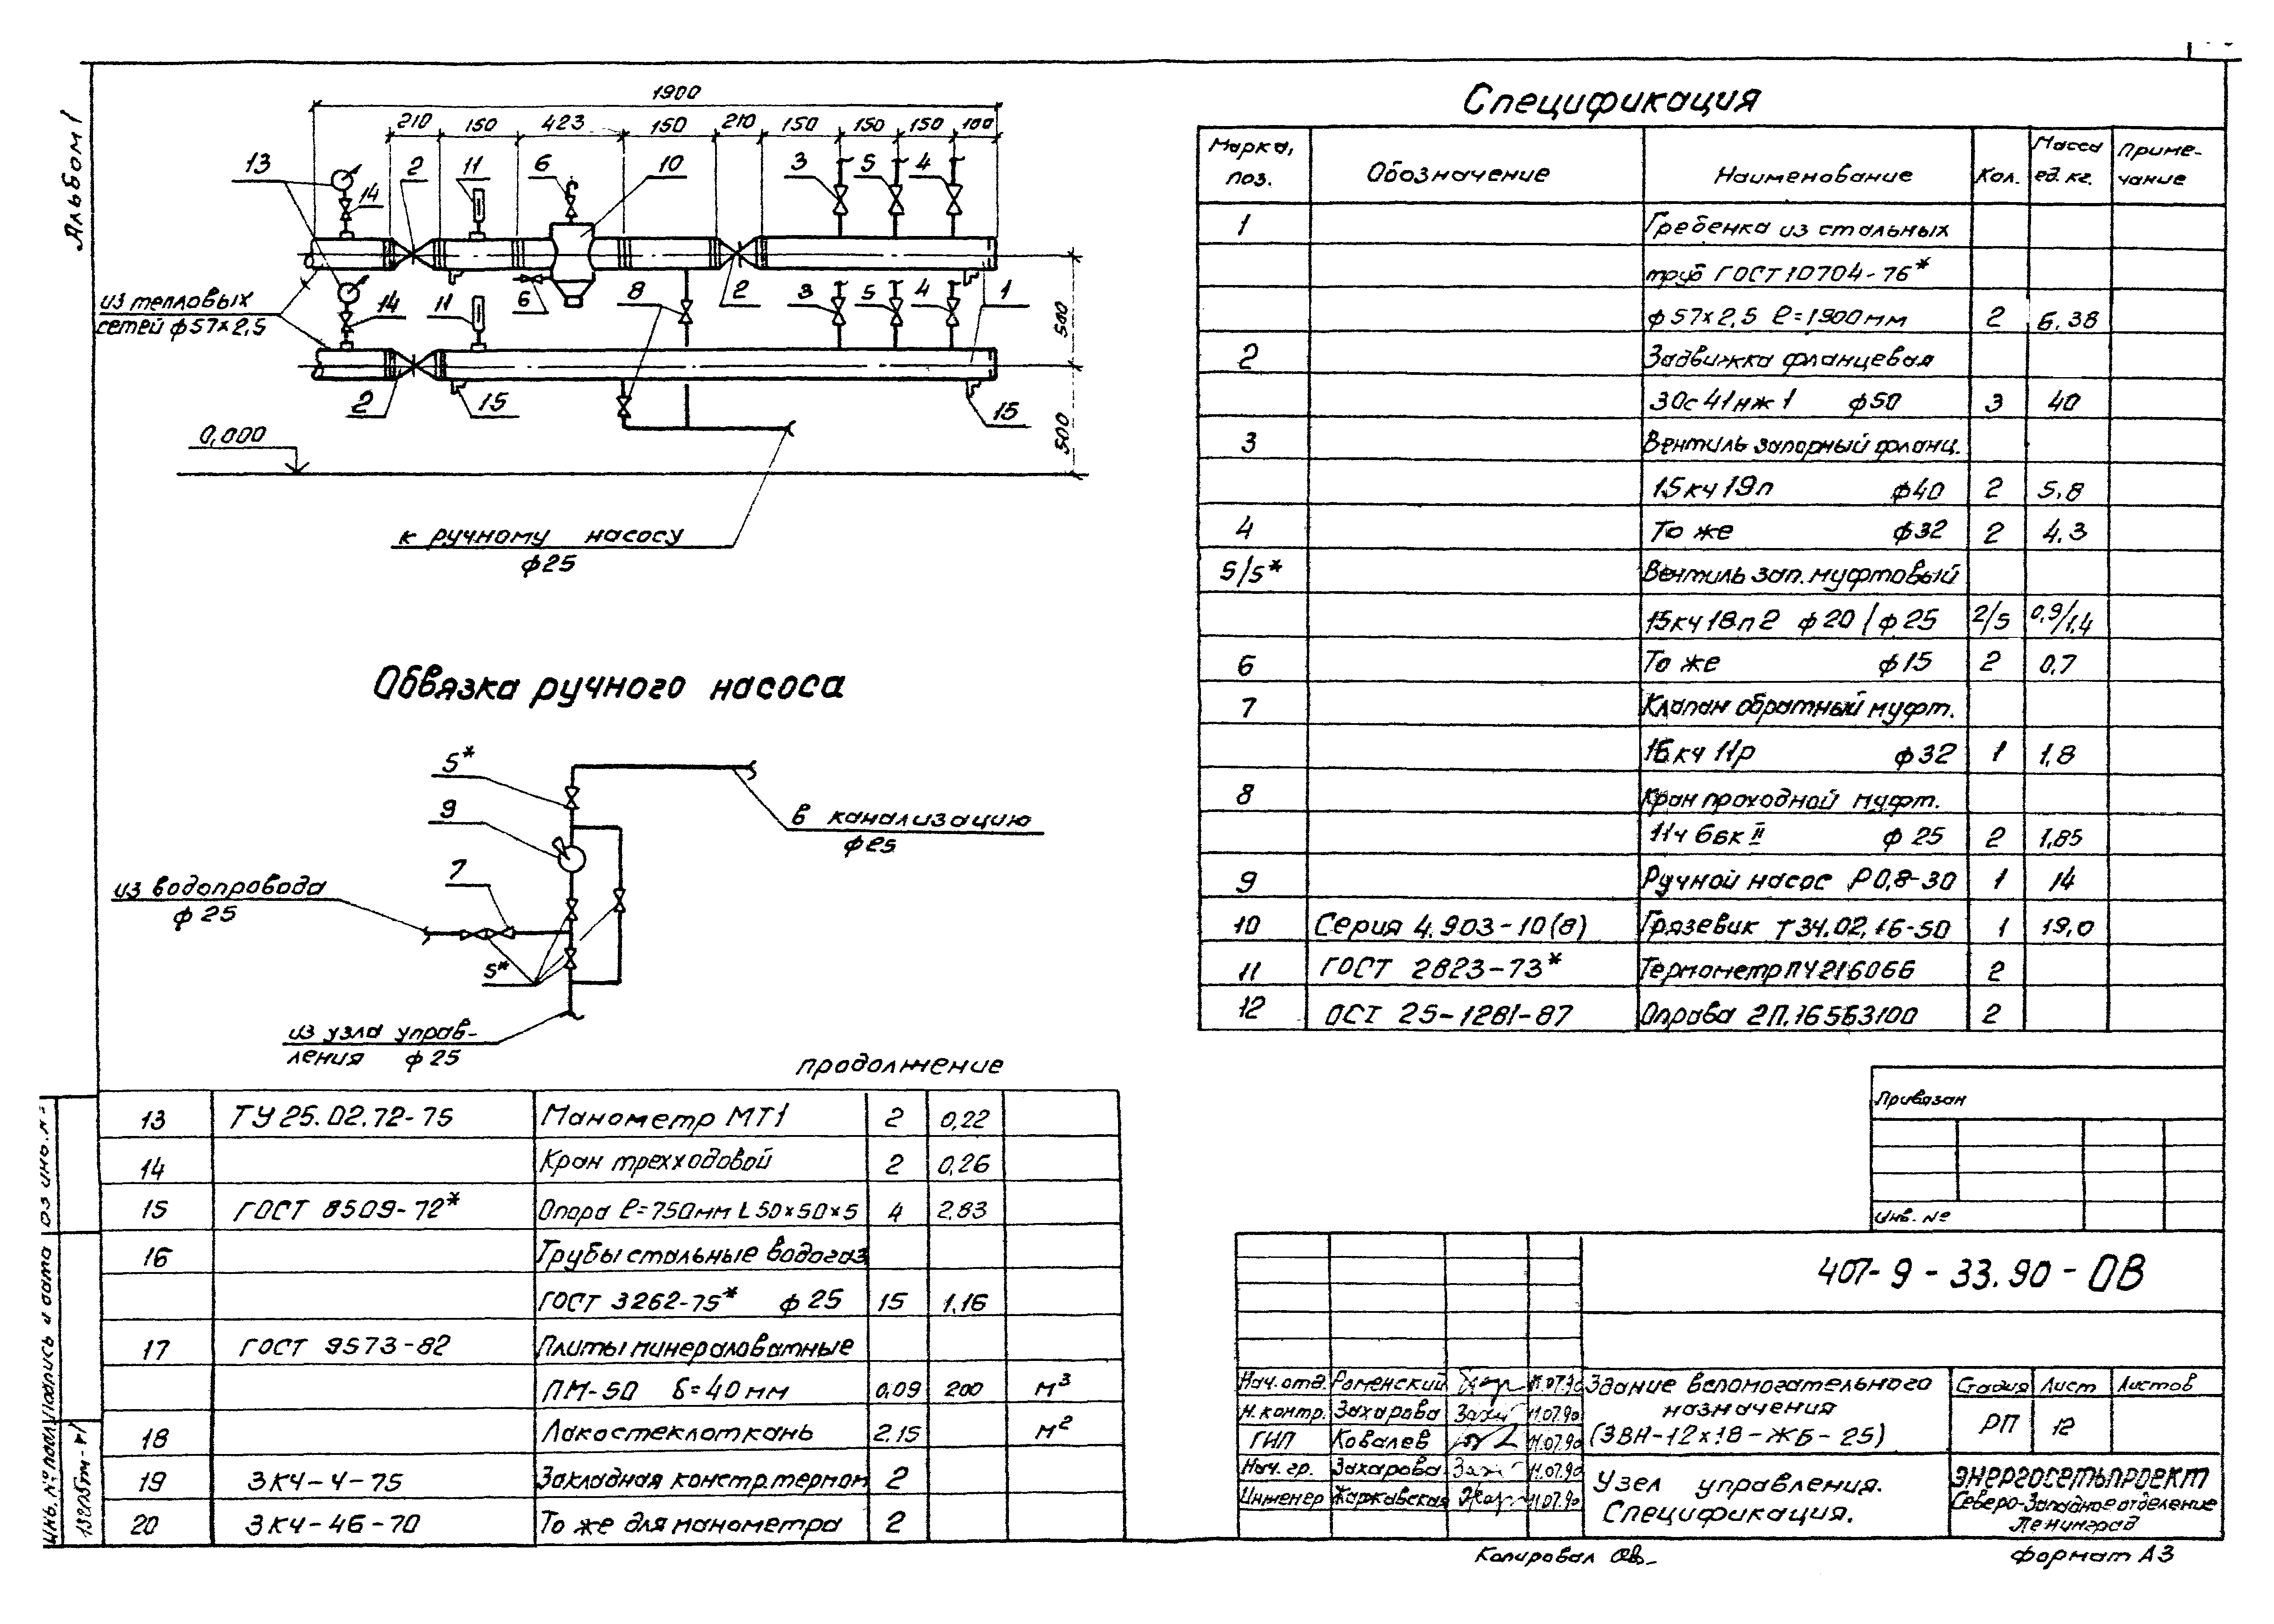 Альбом 1
1900
210 150 423 150 210 150 150 150 100
13 2 11 6 10 3 5 4
14
из тепловых
сетей ф57×2,5
14 11 6 8 2 3 5 4 1
500
2 15 15
0,000
500
к ручному насосу
ф25
Обвязка ручного насоса
5*
9
в канализацию
ф25
7
из водопровода
ф25
5*
из узла управ-
ления ф25
Спецификация
Марка, поз. Обозначение Наименование Кол. Масса ед. кг. Приме-чание
1 Гребенка из стальных
труб ГОСТ 10704-76*
ф57×2,5 ℓ=1900мм 2 6,38
2 Задвижка фланцевая
30с41нж1 ф50 3 40
3 Вентиль запорный фланц.
15кч19п ф40 2 5,8
4 То же ф32 2 4,3
5/5* Вентиль зап. муфтовый
15кч18п2 ф20/ф25 2/5 0,9/1,4
6 То же ф15 2 0,7
7 Клапан обратный муфт.
16кч11р ф32 1 1,8
8 Кран проходной муфт.
11ч6бк II ф25 2 1,85
9 Ручной насос Р0,8-30 1 14
10 Серия 4.903-10(8) Грязевик Т34.02.16-50 1 19,0
11 ГОСТ 2823-73* Термометр ПЧ216066 2
12 ОСТ 25-1281-87 Оправа 2П.16563100 2
продолжение
13 ТУ 25.02.72-75 Манометр МТ1 2 0,22
14 Кран трехходовой 2 0,26
15 ГОСТ 8509-72* Опора ℓ=750мм L50×50×5 4 2,83
16 Трубы стальные водогаз
ГОСТ 3262-75* ф25 15 1,16
17 ГОСТ 9573-82 Плиты минераловатные
ПМ-50 δ=40мм 0,09 200 м³
18 Лакостеклоткань 2.15 м²
19 ЗКЧ-4-75 Закладная констр. термом 2
20 ЗКЧ-46-70 То же для манометра 2
Привязан
Инв. №
407-9-33.90-ОВ
Нач. отд. Роменский 11.07.90
Н. контр. Захарова 11.07.90
ГИП Ковалев 11.07.90
Нач. гр. Захарова 11.07.90
Инженер Жарковская 11.07.90
Здание вспомогательного
назначения
(ЗВН-12×18-ЖБ-25)
Стадия Лист Листов
РП 12
Узел управления.
Спецификация.
ЭНЕРГОСЕТЬПРОЕКТ
Северо-Западное отделение
Ленинград
Копировал
формат А3
Инв. № подл. Подпись и дата